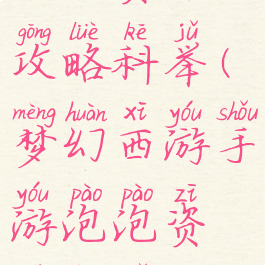 gōng lüè kē jǔ
攻略科举(
mèng huàn xī yóu shǒu
梦幻西游手
yóu pào pào zī
游泡泡资